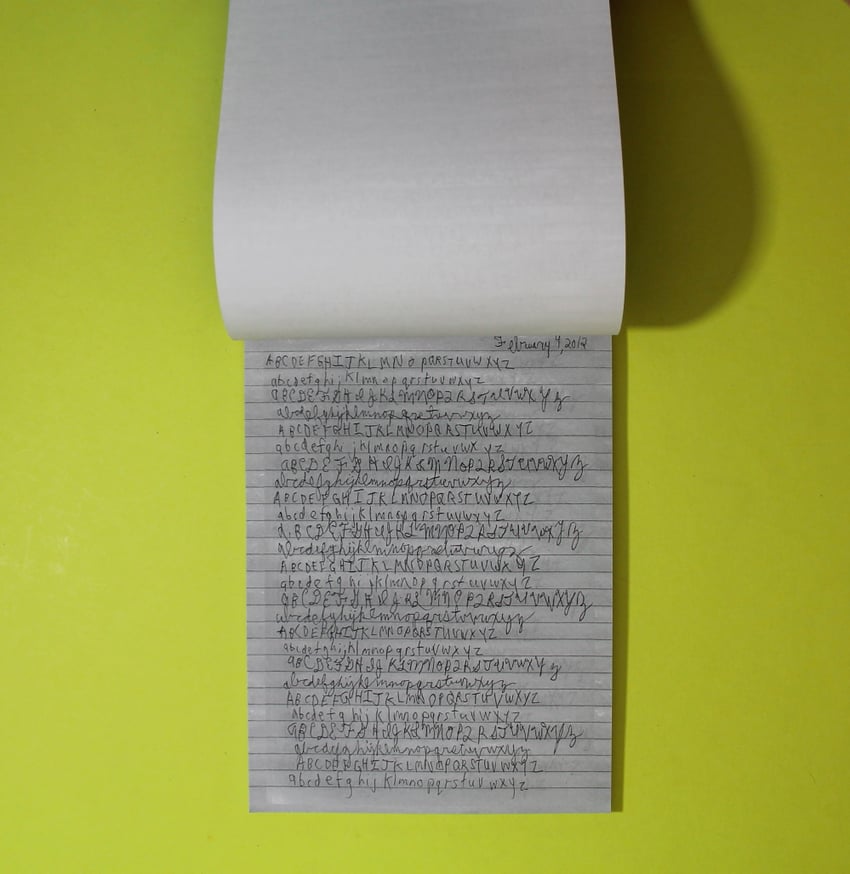 February 4, 2012
ABCDEFGHIJKLMNOPQRSTUVWXYZ
abcdefghijklmnopqrstuvwxyz
ABCDEFGHIJKLMNOPQRSTUVWXYZ
abcdefghijklmnopqrstuvwxyz
ABCDEFGHIJKLMNOPQRSTUVWXYZ
abcdefghijklmnopqrstuvwxyz
ABCDEFGHIJKLMNOPQRSTUVWXYZ
abcdefghijklmnopqrstuvwxyz
ABCDEFGHIJKLMNOPQRSTUVWXYZ
abcdefghijklmnopqrstuvwxyz
ABCDEFGHIJKLMNOPQRSTUVWXYZ
abcdefghijklmnopqrstuvwxyz
ABCDEFGHIJKLMNOPQRSTUVWXYZ
abcdefghijklmnopqrstuvwxyz
ABCDEFGHIJKLMNOPQRSTUVWXYZ
abcdefghijklmnopqrstuvwxyz
ABCDEFGHIJKLMNOPQRSTUVWXYZ
abcdefghijklmnopqrstuvwxyz
ABCDEFGHIJKLMNOPQRSTUVWXYZ
abcdefghijklmnopqrstuvwxyz
ABCDEFGHIJKLMNOPQRSTUVWXYZ
abcdefghijklmnopqrstuvwxyz
ABCDEFGHIJKLMNOPQRSTUVWXYZ
abcdefghijklmnopqrstuvwxyz
ABCDEFGHIJKLMNOPQRSTUVWXYZ
abcdefghijklmnopqrstuvwxyz